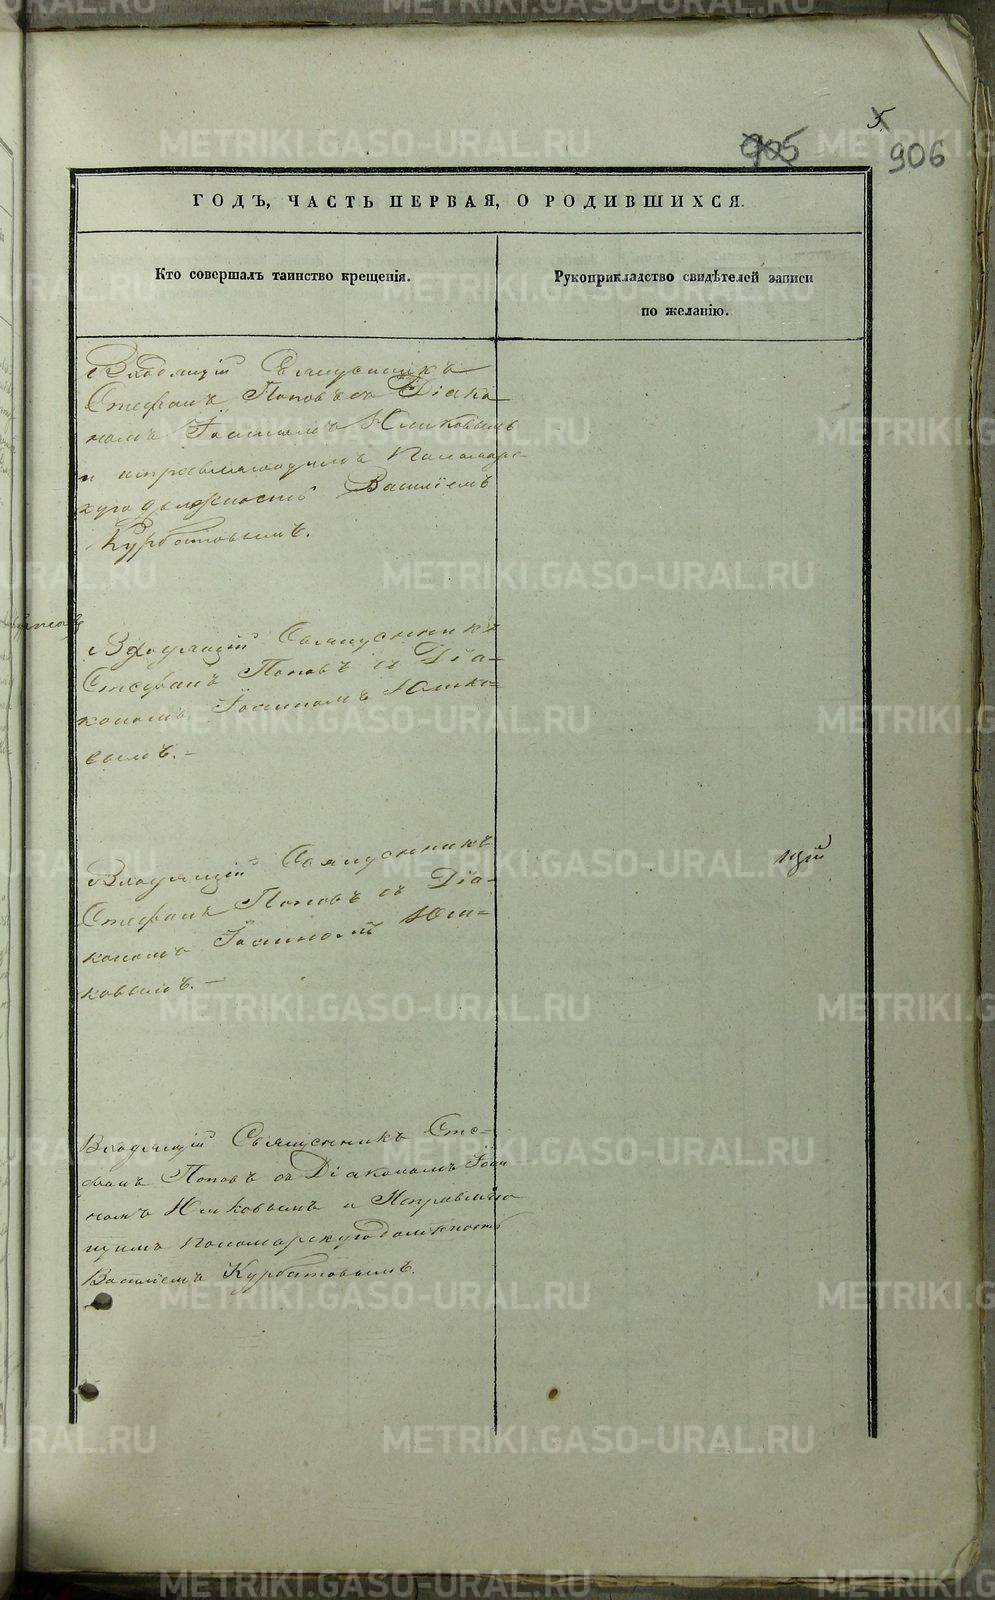 5.
905
906
ГОДЪ, ЧАСТЬ ПЕРВАЯ, О РОДИВШИХСЯ.
Кто совершалъ таинство крещенія.
Рукоприкладство свидѣтелей записи
по желанію.
Священникъ
Стефанъ Поповъ съ Діако
номъ Іоанномъ Юшковымъ
и исправляющимъ Пономарс-
кую должность Василіемъ
Курбатовымъ.
Священникъ
Стефанъ Поповъ съ Діа-
кономъ Іоанномъ Юшко-
вымъ.-
Владящій Священникъ
Стефанъ Поповъ съ Діа-
кономъ Іоанномъ Юш-
ковымъ.-
щій
Владящій Священникъ Сте-
фанъ Поповъ съ Діакономъ Іоан
номъ Юшковымъ и Исправляю
щимъ Пономарскую должность
Василіемъ Курбатовымъ.
METRIKI.GASO-URAL.RU